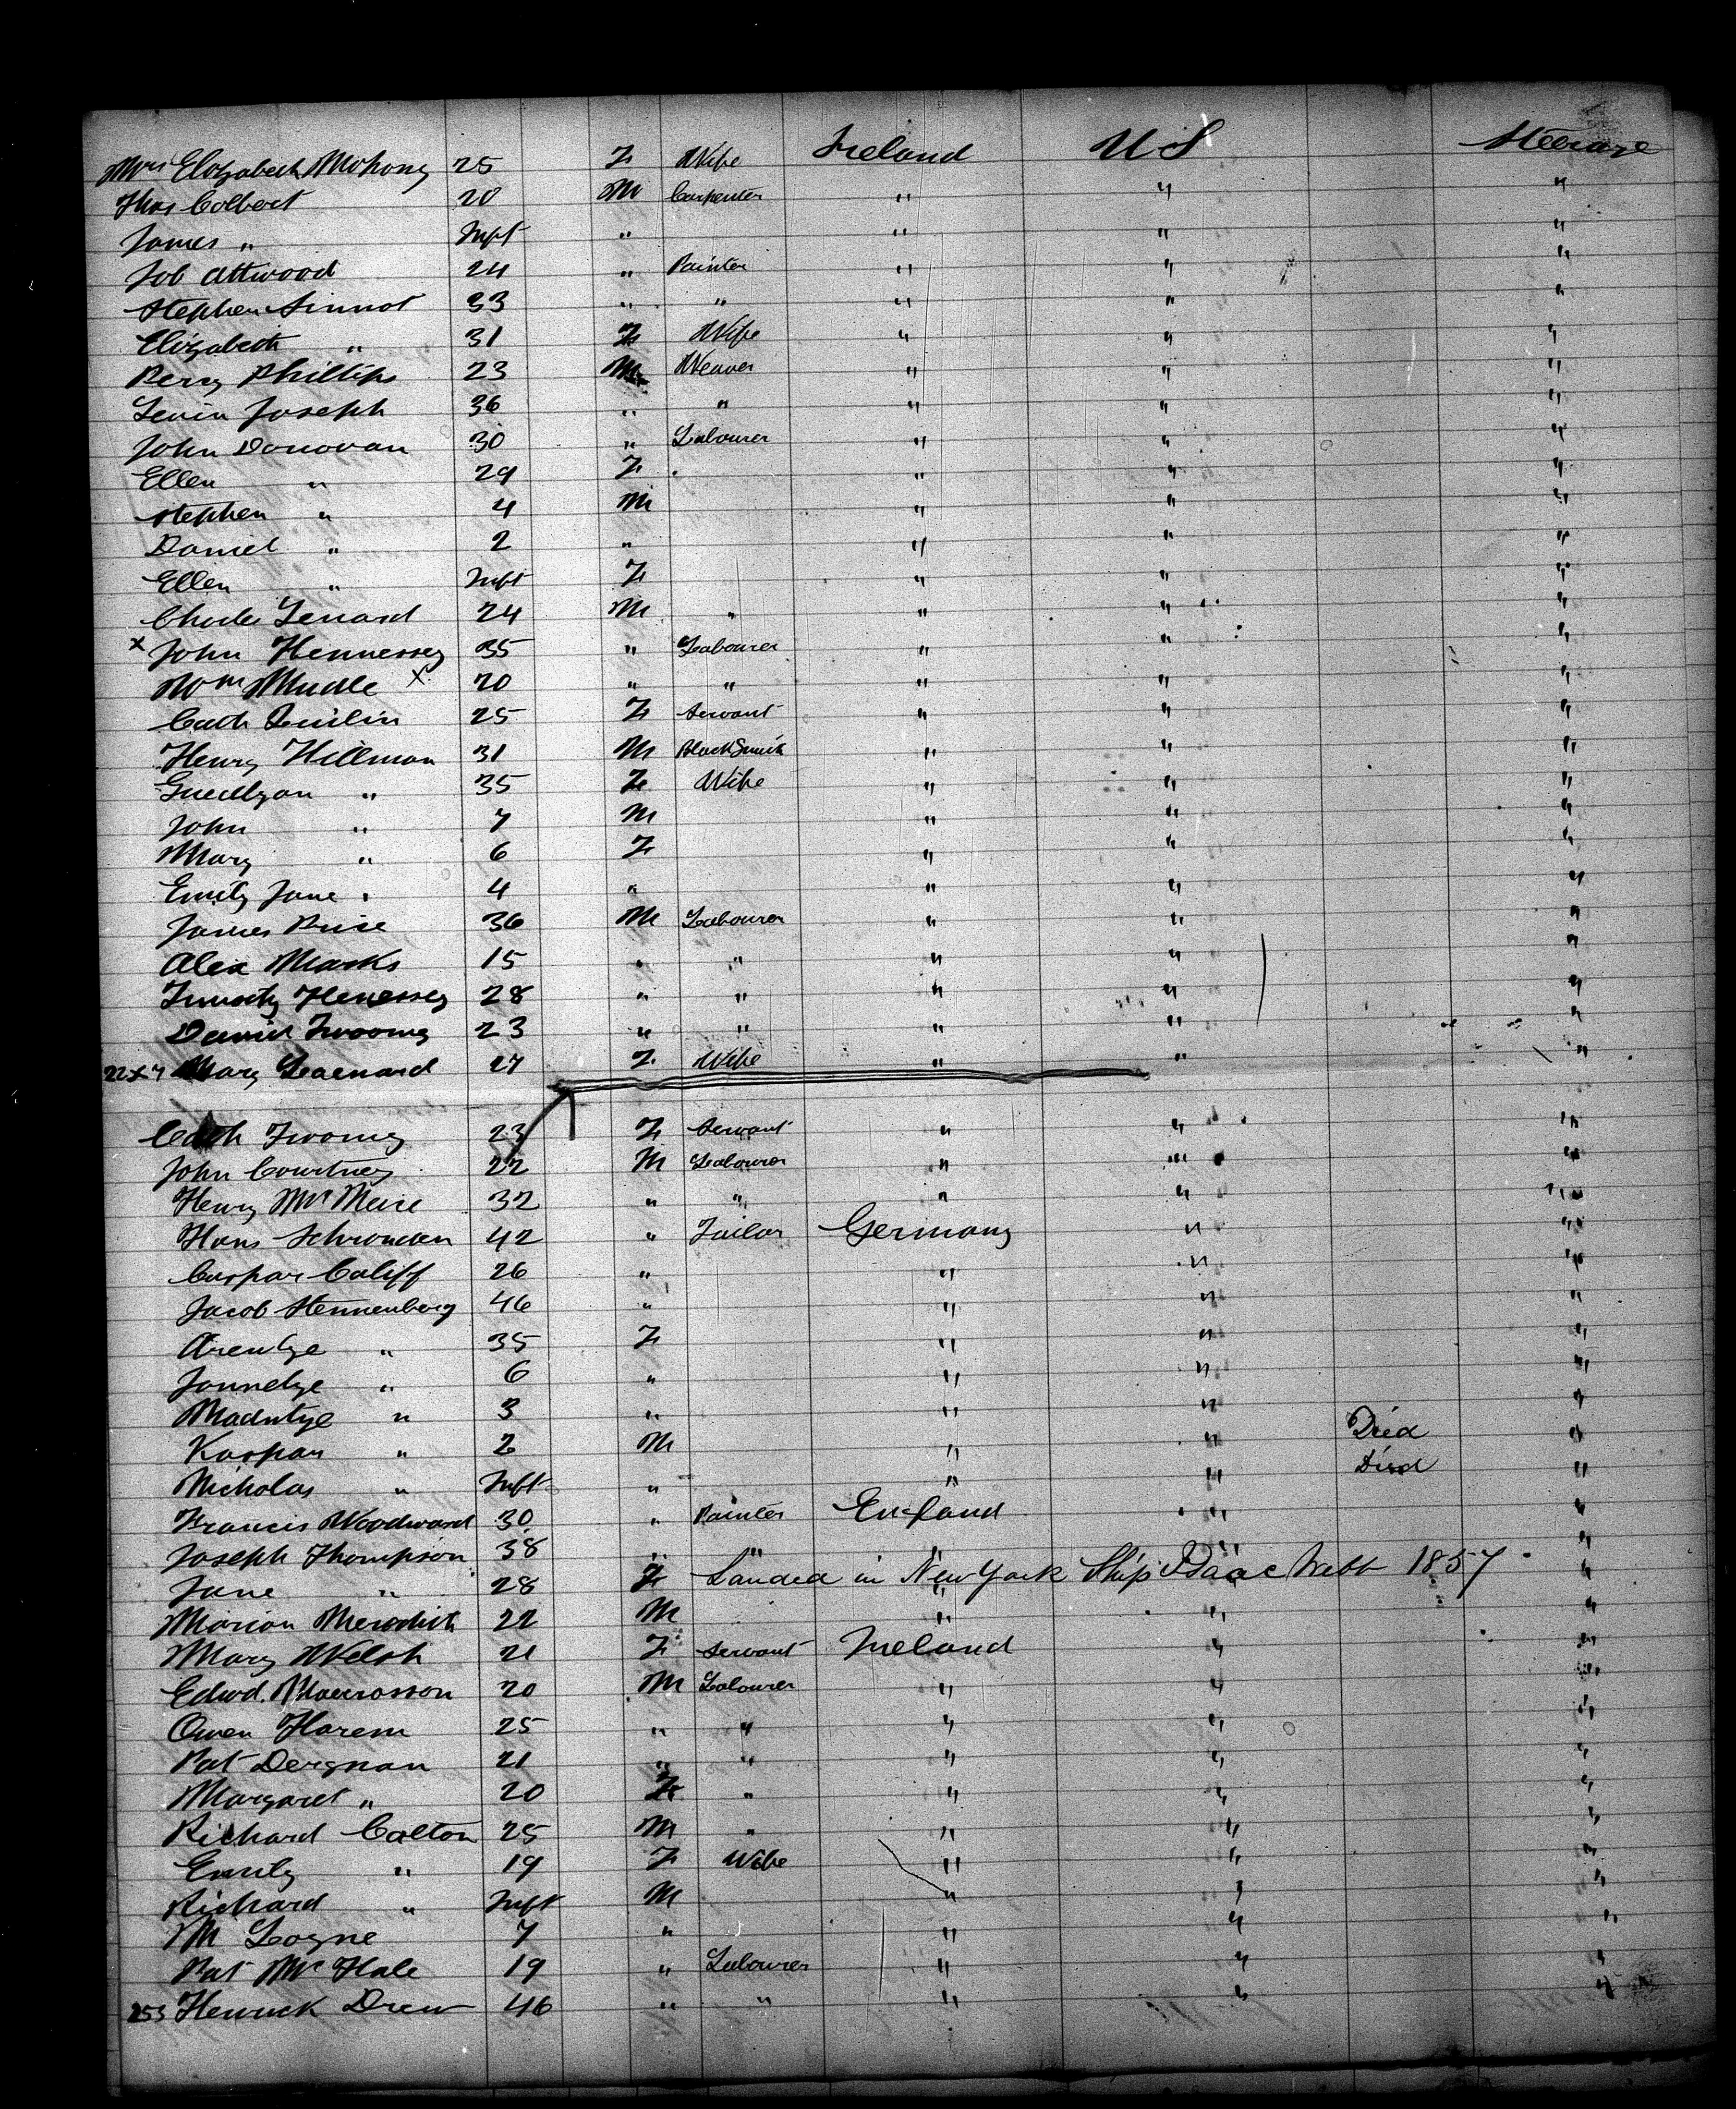 Mrs Elizabeth Mohony 25 F Wife Ireland US Steerage
Thos Colbert 20 M Carpenter " " "
James " Inft " " " "
Job Attwood 24 " Painter " " "
Stephen Sinnot 33 " " " " "
Elizabeth " 31 F Wife " " "
Percy Phillips 23 M Weaver " " "
Levin Joseph 36 " " " " "
John Donovan 30 " Labourer " " "
Ellen " 29 F " " "
Stephen " 4 M " " "
Daniel " 2 " " " "
Ellen " Inft F " " "
Charles Lenard 24 M " " " "
x John Hennessey 35 " Labourer " " "
Wm Mudle x 20 " " " " "
Cath Quilin 25 F Servant " " "
Henry Hillman 31 M BlackSmith " " "
" 35 F Wife " " "
John " 7 M " " "
Mary " 6 F " " "
Emily Jane " 4 " " " "
James Price 36 M Labourer " " "
Alex Marks 15 " " " " "
Timothy Henessey 28 " " " " "
Daniel Twoomy 23 " " " " "
Mary Leaenard 27 F Wife " " "
Cath Twomey 23 F Servant " " "
John Courtney 22 M Labourer " " "
Henry Mc 32 " " " " "
Hans 42 " Tailor Germany " "
Caspar Califf 26 " " " "
Jacob Stennenberg 46 " " " "
Arentye " 35 F " " "
Jannetye " 6 " " " "
" 3 " " " "
Kaspar " 2 M " " Died "
Nicholas " Inft " " " Died "
Francis Woodward 30 " Painter England " "
Joseph Thompson 38 " " " "
Jane " 28 F Landed in New York Ship Isaac Webb 1857 "
Marion Meredith 22 M " " "
Mary Welsh 21 F Servant Ireland " "
Edwd. 20 M Labourer " " "
Owen Harem 25 " " " " "
Pat Dergnan 21 " " " " "
Margaret " 20 F " " " "
Richard Calton 25 M " " " "
Emily " 19 F Wife " " "
Richard " Inft M " " "
M Logne 7 " " " "
Pat McHale 19 " Labourer " " "
253 Henrick Drew 46 " " " " "